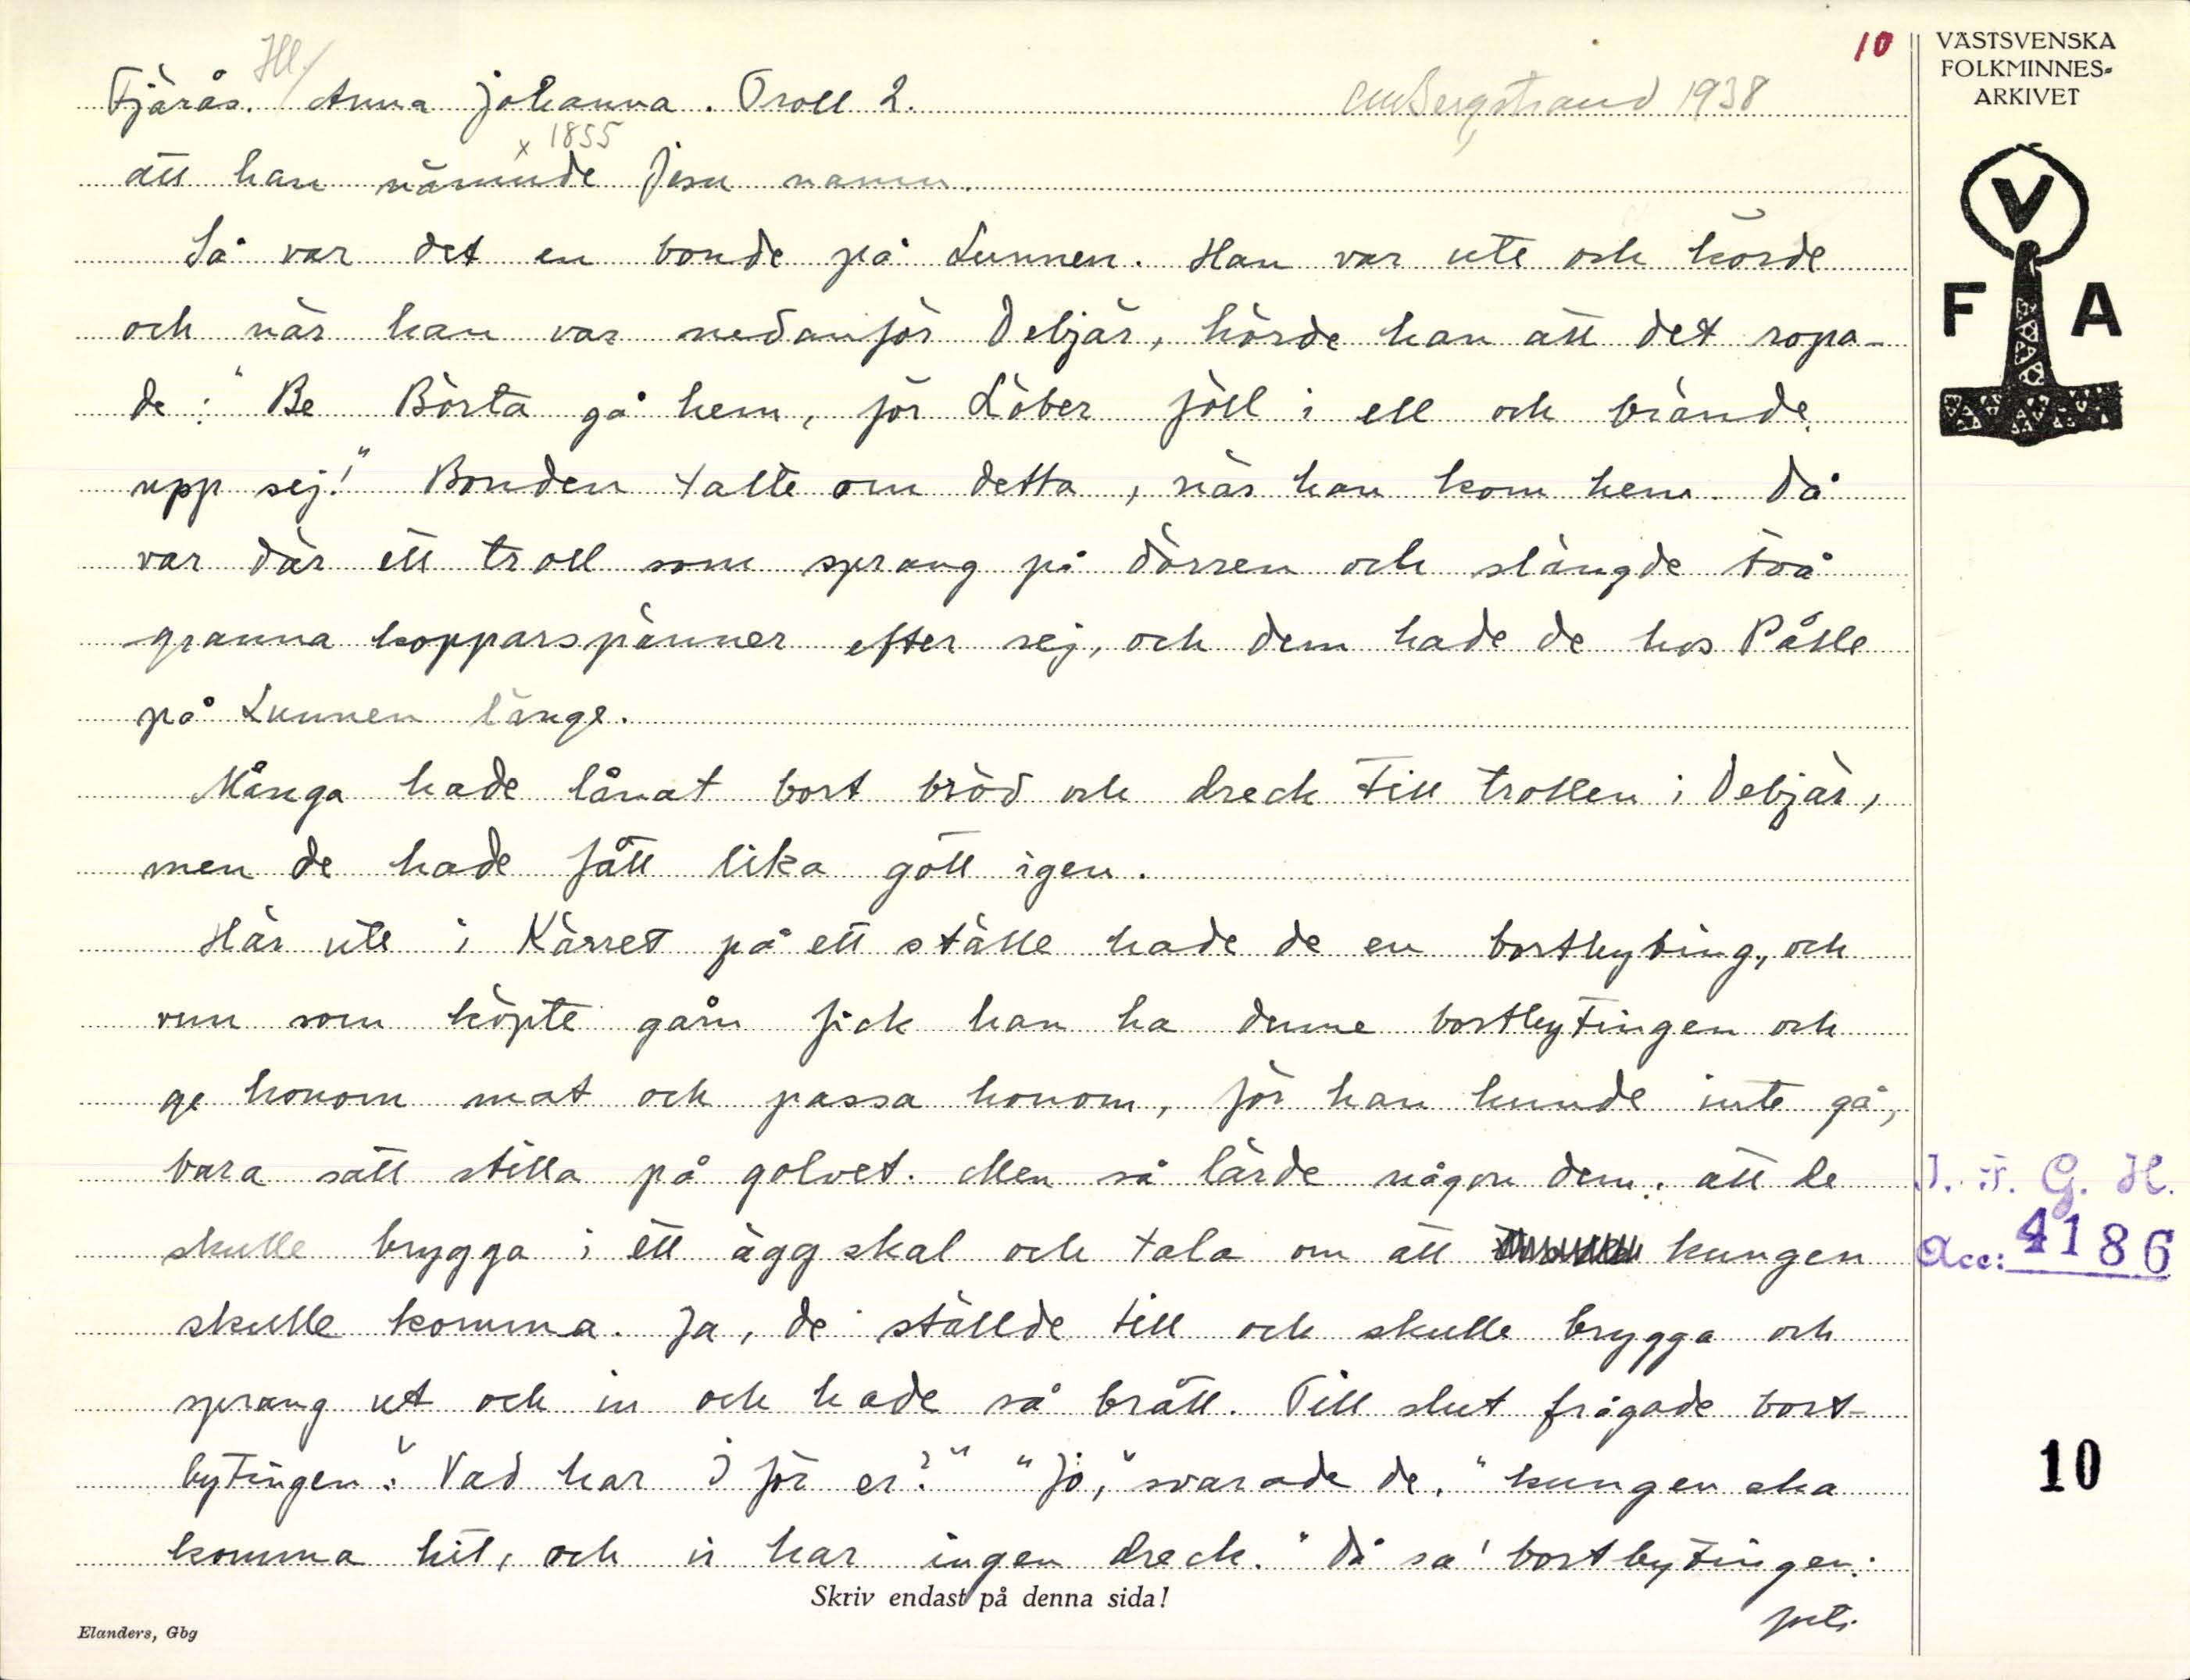 10
VÄSTSVENSKA
FOLKMINNES-
ARKIVET
Hl/
Fjärås. Anna Johanna. Troll 2. CMBergstrand 1938
x 1855
att han nämnde Jesu namn.
Så var det en bonde på Lunnen. Han var ute och körde
och när han var nedanför Debjär, hörde han att det ropa-
de: "Be Börta gå hem, för Löber föll i ell och brände
upp sej!" Bonden talte om detta, när han kom hem. Då
var där ett troll som sprang på dörren och slängde två
granna kopparspänner efter sej, och dem hade de hos Pålle
på Lunnen länge.
Många hade lånat bort bröd och dreck till trollen i Debjär,
men de hade fått lika gott igen.
Här ute i Kärret på ett ställe hade de en bortbyting, och
vem som köpte gårn fick han ha denne bortbytingen och
ge honom mat och passa honom, för han kunde inte gå,
bara satt stilla på golvet. Men så lärde någon dem att de
skulle brygga i ett äggskal och tala om att kungen
skulle komma. Ja, de ställde till och skulle brygga och
sprang ut och in och hade så brått. Till slut frågade bort-
bytingen: "Vad har I för er?" "Jo," svarade de, "kungen ska
komma hit, och vi har ingen dreck." Då sa' bortbytingen:
V
F A
I. F. G. H.
Acc: 4186
10
Skriv endast på denna sida!
Elanders, Gbg